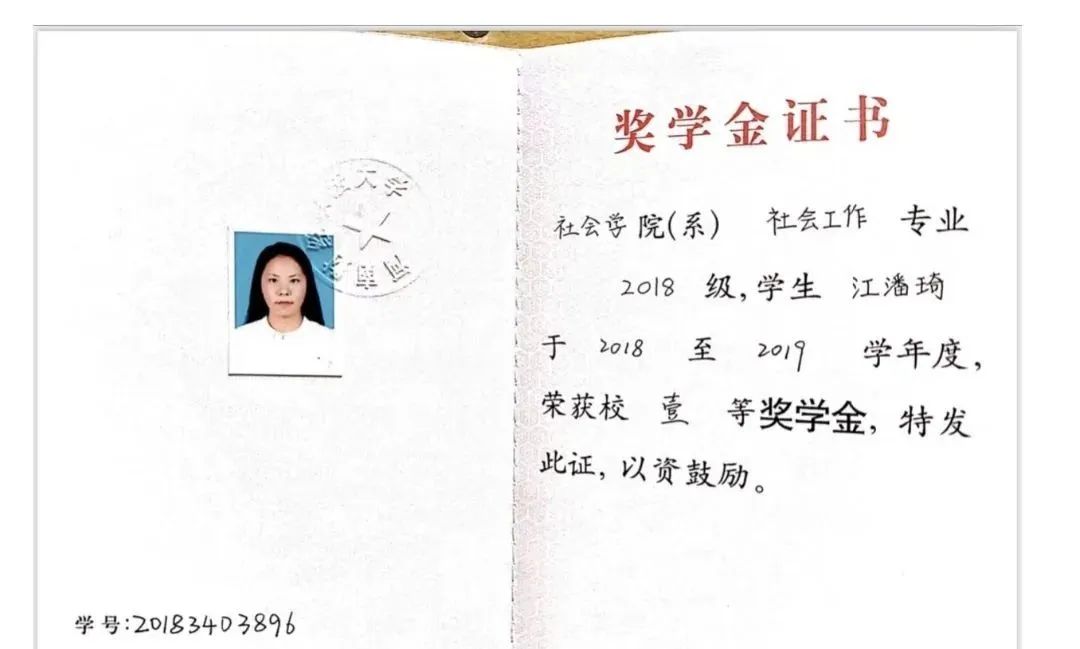 大学
河南
学号:20183403896
奖学金证书
社会学院(系) 社会工作 专业
2018 级,学生 江潘琦
于 2018 至 2019 学年度,
荣获校 壹 等奖学金,特发
此证,以资鼓励。